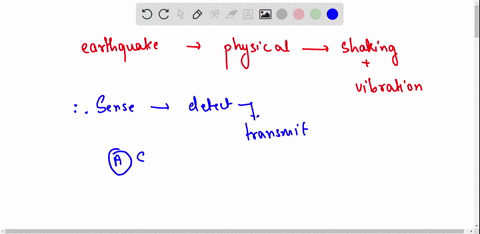 earthquake → physical → shaking
+
vibration
∴ Sense → detect →
transmit
A C